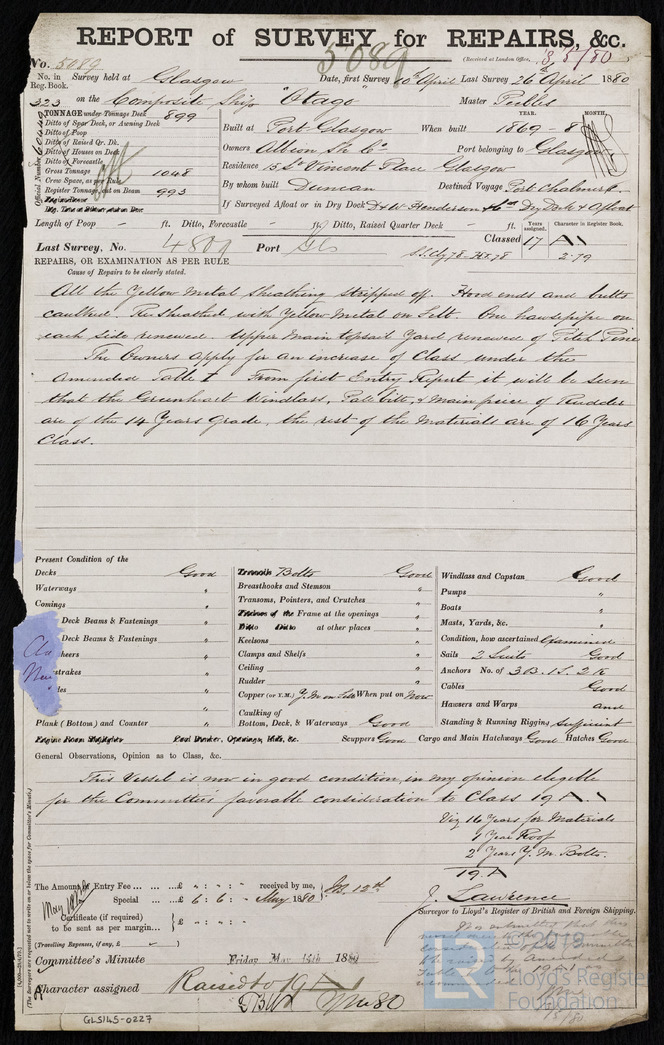 REPORT of SURVEY for REPAIRS, &c.
No. 5089
5089
(Received at London Office, 13/5/80
No. in Reg. Book. Survey held at Glasgow Date, first Survey 10th April Last Survey 26th April 1880
323 on the Composite Ship "Otago" Master Peebles
TONNAGE under Tonnage Deck 899
Ditto of Spar Deck, or Awning Deck
Ditto of Poop
Ditto of Raised Qr. Dk.
Ditto of Houses on Deck
Ditto of Forecastle
Gross Tonnage 1048
Crew Space, as per Rule
Register Tonnage, cut on Beam 993
Official Number
YEAR. MONTH.
Built at Port Glasgow When built 1869-8
Owners Albion Sh. Co. Port belonging to Glasgow
Residence 15 St Vincent Place Glasgow
By whom built Duncan Destined Voyage Port Chalmers
If Surveyed Afloat or in Dry Dock D & W Henderson & Co Dry Dock & Afloat
Length of Poop — ft. Ditto, Forecastle ft. Ditto, Raised Quarter Deck — ft.
Last Survey, No. 4809 Port Gls
Classed Years assigned. 17 Character in Register Book. A1
2.79
REPAIRS, OR EXAMINATION AS PER RULE
Cause of Repairs to be clearly stated.
All the Yellow Metal Sheathing stripped off. Hood ends and butts
caulked. Re-Sheathed with Yellow Metal on Felt. One hawsepipe on
each side renewed. Upper Main topsail Yard renewed of Pitch Pine
The Owners apply for an increase of Class under the
Amended Table F From first Entry Report it will be seen
that the Greenheart Windlass, Pall bitt, & Main piece of Rudder
are of the 14 Years Grade, the rest of the Materials are of 16 Years
Class.
Present Condition of the
Decks Good
Waterways "
Comings "
Deck Beams & Fastenings "
Deck Beams & Fastenings "
heers "
strakes "
Plank (Bottom) and Counter "
Bolts Good
Breasthooks and Stemson "
Transoms, Pointers, and Crutches "
Frame at the openings "
at other places "
Keelsons "
Clamps and Shelfs "
Ceiling "
Rudder "
Copper (or Y.M.) Y.M on Felt When put on Now
Caulking of
Bottom, Deck, & Waterways Good
Scuppers Good Cargo and Main Hatchways Good Hatches Good
Windlass and Capstan Good
Pumps "
Boats "
Masts, Yards, &c. "
Condition, how ascertained Examined
Sails 2 Suits Good
Anchors No. of 3B. 1S. 2K
Cables Good
Hawsers and Warps and
Standing & Running Rigging Sufficient
General Observations, Opinion as to Class, &c.
This Vessel is now in good condition, in my opinion eligible
for the Committee's favorable consideration to Class 19 A1
Viz 16 Years for Materials
1 Year Roof
2 Years Y.M. Bolts.
19 A
The Amount of Entry Fee £ " : " : " received by me,
Special £ 6 : 6 : - May 1880
Certificate (if required) to be sent as per margin £ " : " : "
(Travelling Expenses, if any, £
J. Lawrence
Surveyor to Lloyd's Register of British and Foreign Shipping.
Committee's Minute Friday May 14th 1880
Character assigned Raised to 19 A1
(The Surveyors are requested not to write on or below the space for Committee's Minute.)
GLS145-0227
© 2019
LR
Lloyd's Register
Foundation